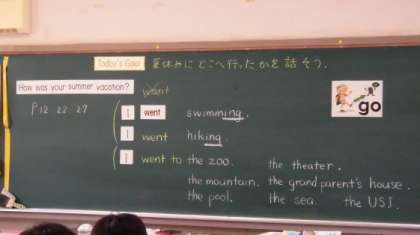 Today's Goal 夏休みにどこへ行ったかを話そう.
How was your summer vacation?
want
P12 22 27
I went swimming.
go
I went hiking.
I went to the zoo. the theater.
the mountain. the grandparent's house.
the pool. the sea. the USJ.